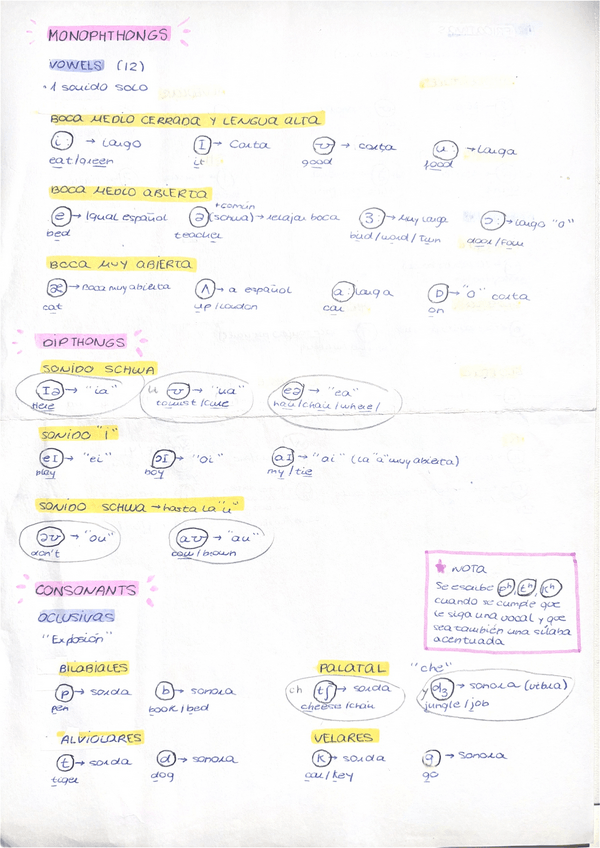 MONOPHTHONGS
VOWELS (12)
· 1 SONIDO SOLO
BOCA MEDIO CERRADA Y LENGUA ALTA
i: → Largo
I → Corta
ʊ → corta
u: → Larga
eat/green
it
good
food
BOCA MEDIO ABIERTA
e → Igual español
ə (schwa) → relajar boca
+común
3: → Muy larga
ɔ: → Largo "o"
bed
teacher
bird/word/turn
door/four
BOCA MUY ABIERTA
æ → Boca muy abierta
Λ → a español
a: larga
ɒ → "o" corta
cat
up/london
car
on
DIPTHONGS
SONIDO SCHWA
Iə → "ia"
u ʊ → "ua"
eə → "ea"
Here
tourist/cure
hair/chair/where/
SONIDO "I"
eI → "ei"
ɔI → "oi"
aI → "ai" (La "a" muy abierta)
play
boy
my/tie
SONIDO SCHWA → hasta la "u"
əʊ → "ou"
aʊ → "au"
don't
cow/brown
CONSONANTS
OCLUSIVAS
"Explosión"
★ NOTA
Se escribe pʰ, tʰ, kʰ
cuando se cumple que
le siga una vocal y que
sea también una sílaba
acentuada
BILABIALES
p → sorda
b → sonora
pen
book/bed
PALATAL "che"
ch tʃ → sorda
y dʒ → sonora (vibra)
cheese/chair
jungle/job
ALVIOLARES
t → sorda
d → sonora
tiger
dog
VELARES
k → sorda
g → sonora
car/key
go